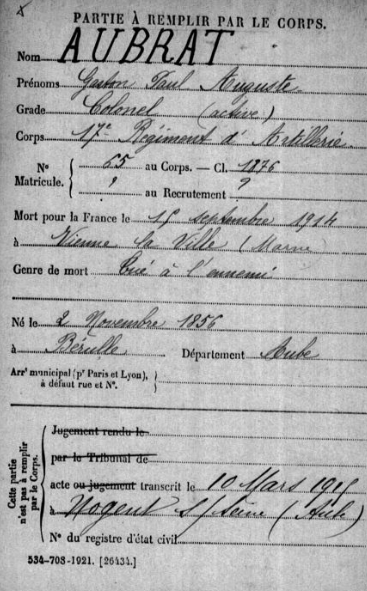 PARTIE À REMPLIR PAR LE CORPS.
Nom AUBRAT
Prénoms Gaston Paul Auguste
Grade Colonel (active)
Corps 17e Régiment d'Artillerie.
N° Matricule. { 65 au Corps. — Cl. 1876
? au Recrutement ?
Mort pour la France le 15 septembre 1914
à Vienne la Ville (Marne)
Genre de mort Tué à l'ennemi
Né le 2 Novembre 1856
à Bérulle Département Aube
Arrt municipal (pr Paris et Lyon), à défaut rue et N°.
Cette partie n'est pas à remplir par le Corps.
Jugement rendu le
par le Tribunal de
acte ou jugement transcrit le 10 Mars 1915
à Nogent s/Seine (Aube)
N° du registre d'état civil
534-708-1921. [26434.]